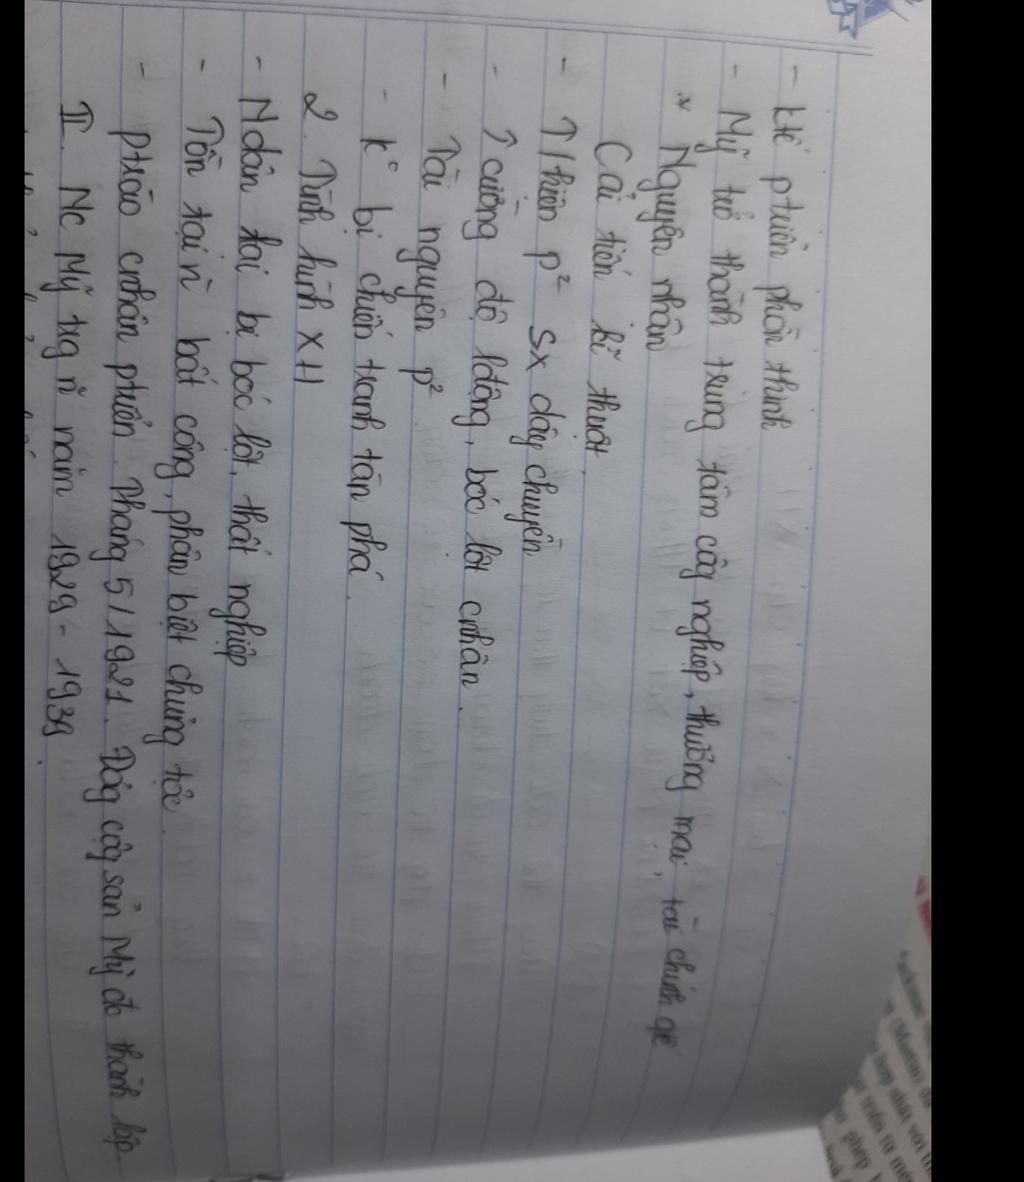 - ktế ptriển phồn thịnh
- Mỹ trở thành trung tâm côg nghiệp, thương mại, tài chính qtế
* Nguyên nhân
Cải tiến kĩ thuật.
- T/hiện p² sx dây chuyền
- Tcường độ lđộng, bóc lột cnhân.
- Tài nguyên p².
- K° bị chiến tranh tàn phá.
2. Tình hình XH
- Ndân lại bị bóc lột, thất nghiệp
- Tồn tại n` bất công, phân biệt chủng tộc.
- ptrào cnhân ptriển. Tháng 5/1921. Đảg cộg sản Mỹ đc thành lập.
II. Nc Mỹ trg n~ năm 1929 - 1939